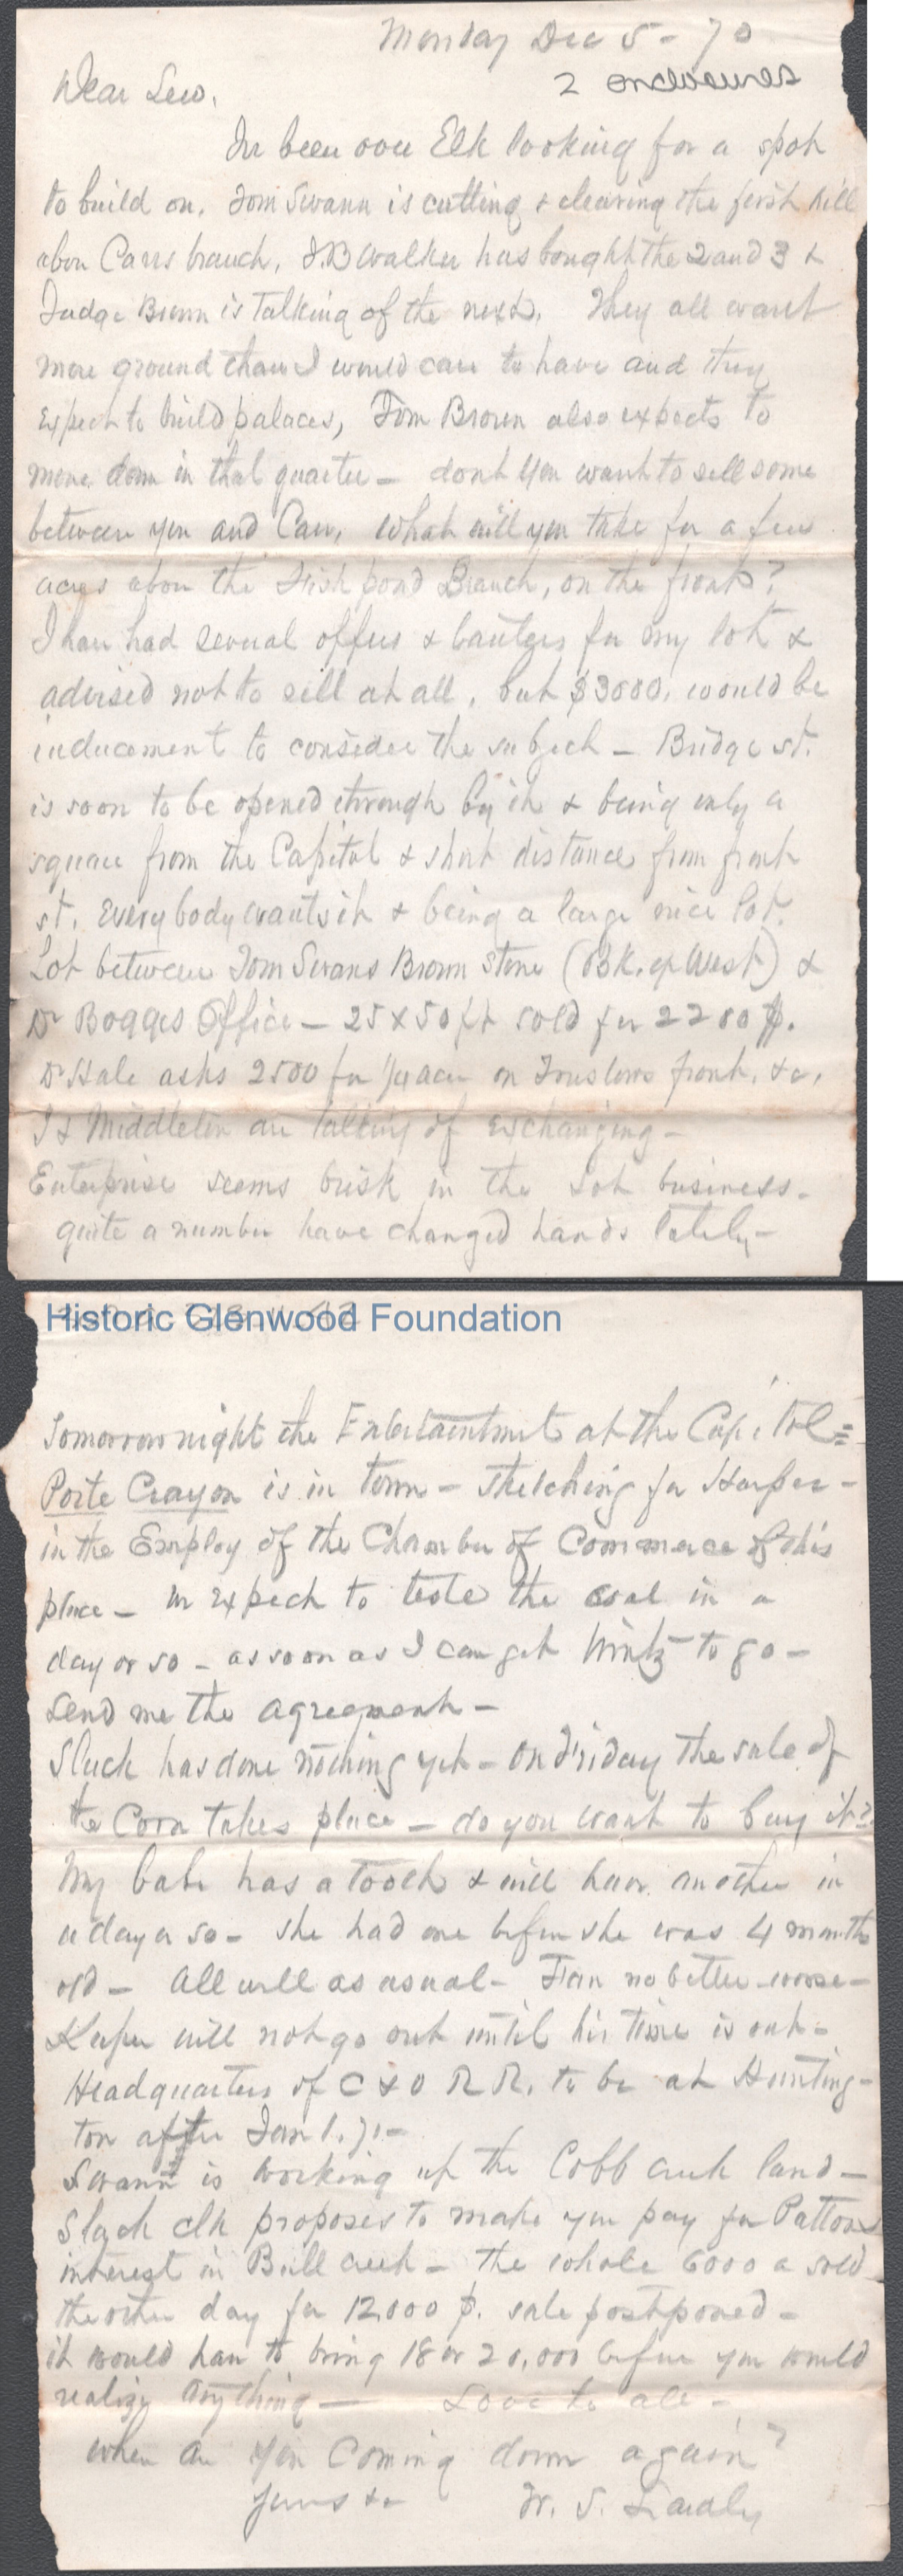 Monday Dec 5 - 70
2 enclosures
Dear Lew,
Ive been over Elk looking for a spot
to build on. Tom Swann is cutting & clearing the first hill
abov Carrs branch, J.B Walker has bought the 2 and 3 &
Judge Brown is talking of the next. They all want
more ground than I would care to have and they
expect to build palaces, Tom Brown also expects to
move down in that quarter - dont you want to sell some
between you and Carr, What will you take for a few
acres abov the Fish pond Branch, on the front?
I hav had several offers & banters for my lot &
advised not to sell at all, but $3000. would be
inducement to consider the subject - Bridge st.
is soon to be opened through by it & being only a
square from the Capitol & short distance from front
st. Every body wants it & being a large nice lot.
Lot between Tom Swans Brown Stone (Bk. of West) &
Dr Boggs Office - 25 x 50 ft sold for 2200 $.
Dr Hale asks 2500 for 1/4 acre on Truslows front, &c,
I & Middleton are talking of exchanging -
Enterprise seems brisk in the Lot business -
quite a number have changed hands lately -
Historic Glenwood Foundation
Tomorrow night the Entertainment at the Capitol =
Porte Crayon is in town - sketching for Harper -
in the Employ of the Chamber of Commerce of this
place - We expect to teste the coal in a
day or so - as soon as I can get to go -
Send me the agreement -
Slack has done nothing yet - On Friday the sale of
the Corn takes place - do you want to buy it?
My babe has a tooth & will hav another in
a day or so - she had one before she was 4 months
old - All well as usual - Fan no better - worse -
will not go out until his time is out -
Headquarters of C & O R R. to be at Hunting-
ton after Jan 1. 71 -
Swann is working up the Cobb creek land -
Slack clk proposes to make you pay for Pattons
interest in Bull creek - the whole 6000 a sold
the other day for 12,000 $. sale postponed -
it would hav to bring 18 or 20,000 before you would
realize anything - Love to all -
When are you coming down again?
Yours &c W. S. Laidley